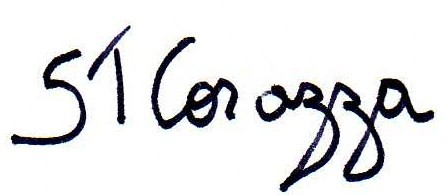 ST Corazza